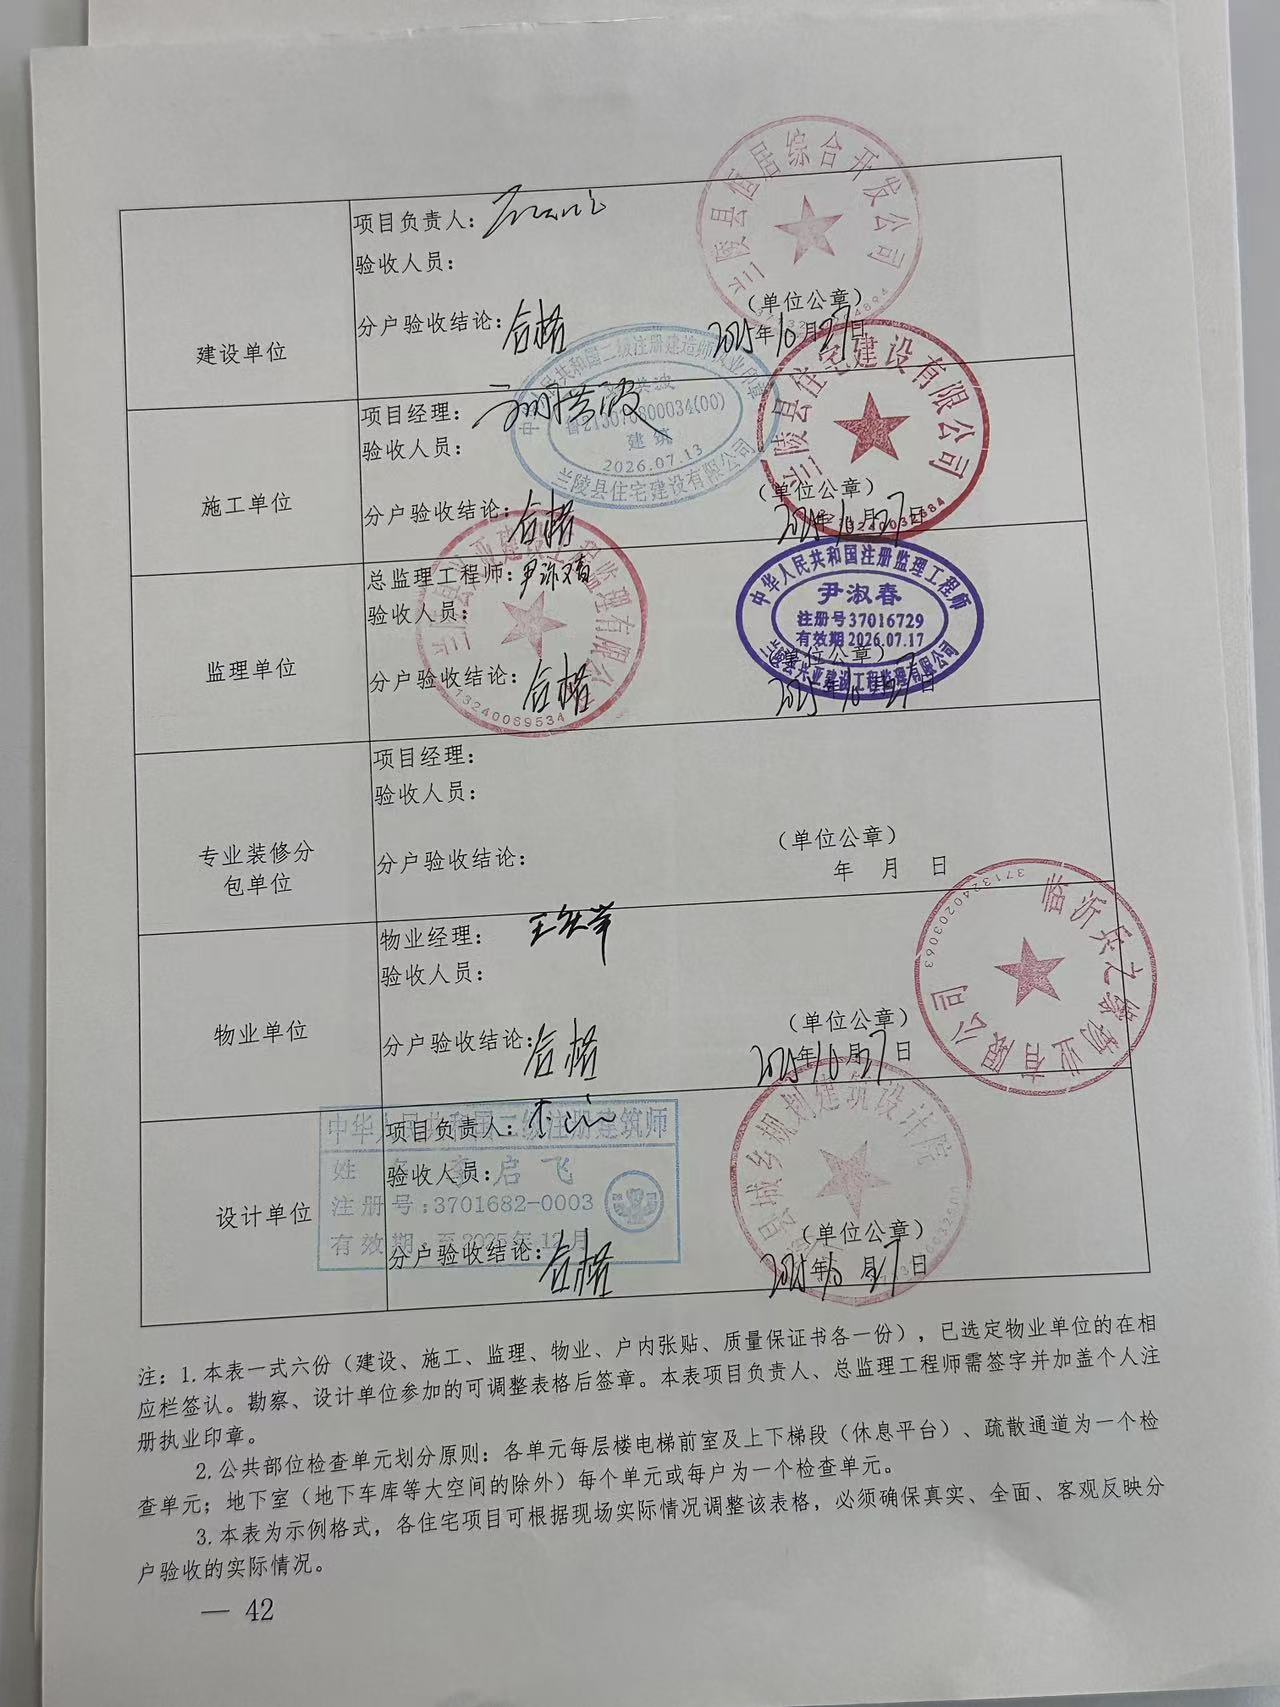 兰陵县恒居综合开发公司
建设单位
项目负责人：
验收人员：
分户验收结论：合格
（单位公章）
2025年10月27日
中华人民共和国二级注册建造师执业印章
鲁213070800034(00)
建筑
2026.07.13
兰陵县住宅建设有限公司
兰陵县住宅建设有限公司
施工单位
项目经理：
验收人员：
分户验收结论：合格
（单位公章）
2025年10月27日
兰陵县兴亚建设工程监理有限公司
13240069534
监理单位
总监理工程师：尹淑春
验收人员：
分户验收结论：合格
中华人民共和国注册监理工程师
尹淑春
注册号37016729
有效期2026.07.17
兰陵县兴亚建设工程监理有限公司
（单位公章）
2025年10月27日
专业装修分
包单位
项目经理：
验收人员：
分户验收结论：
（单位公章）
年 月 日
物业有限公司
3713240203063
物业单位
物业经理：
验收人员：
分户验收结论：合格
（单位公章）
2025年10月27日
县城乡规划建筑设计院
设计单位
项目负责人：
验收人员：
分户验收结论：合格
（单位公章）
2025年10月27日
中华人民共和国二级注册建筑师
姓 名 李启飞
注册号：3701682-0003
有效期：至2025年12月
注：1.本表一式六份（建设、施工、监理、物业、户内张贴、质量保证书各一份），已选定物业单位的在相
应栏签认。勘察、设计单位参加的可调整表格后签章。本表项目负责人、总监理工程师需签字并加盖个人注
册执业印章。
2.公共部位检查单元划分原则：各单元每层楼电梯前室及上下梯段（休息平台）、疏散通道为一个检
查单元；地下室（地下车库等大空间的除外）每个单元或每户为一个检查单元。
3.本表为示例格式，各住宅项目可根据现场实际情况调整该表格，必须确保真实、全面、客观反映分
户验收的实际情况。
— 42